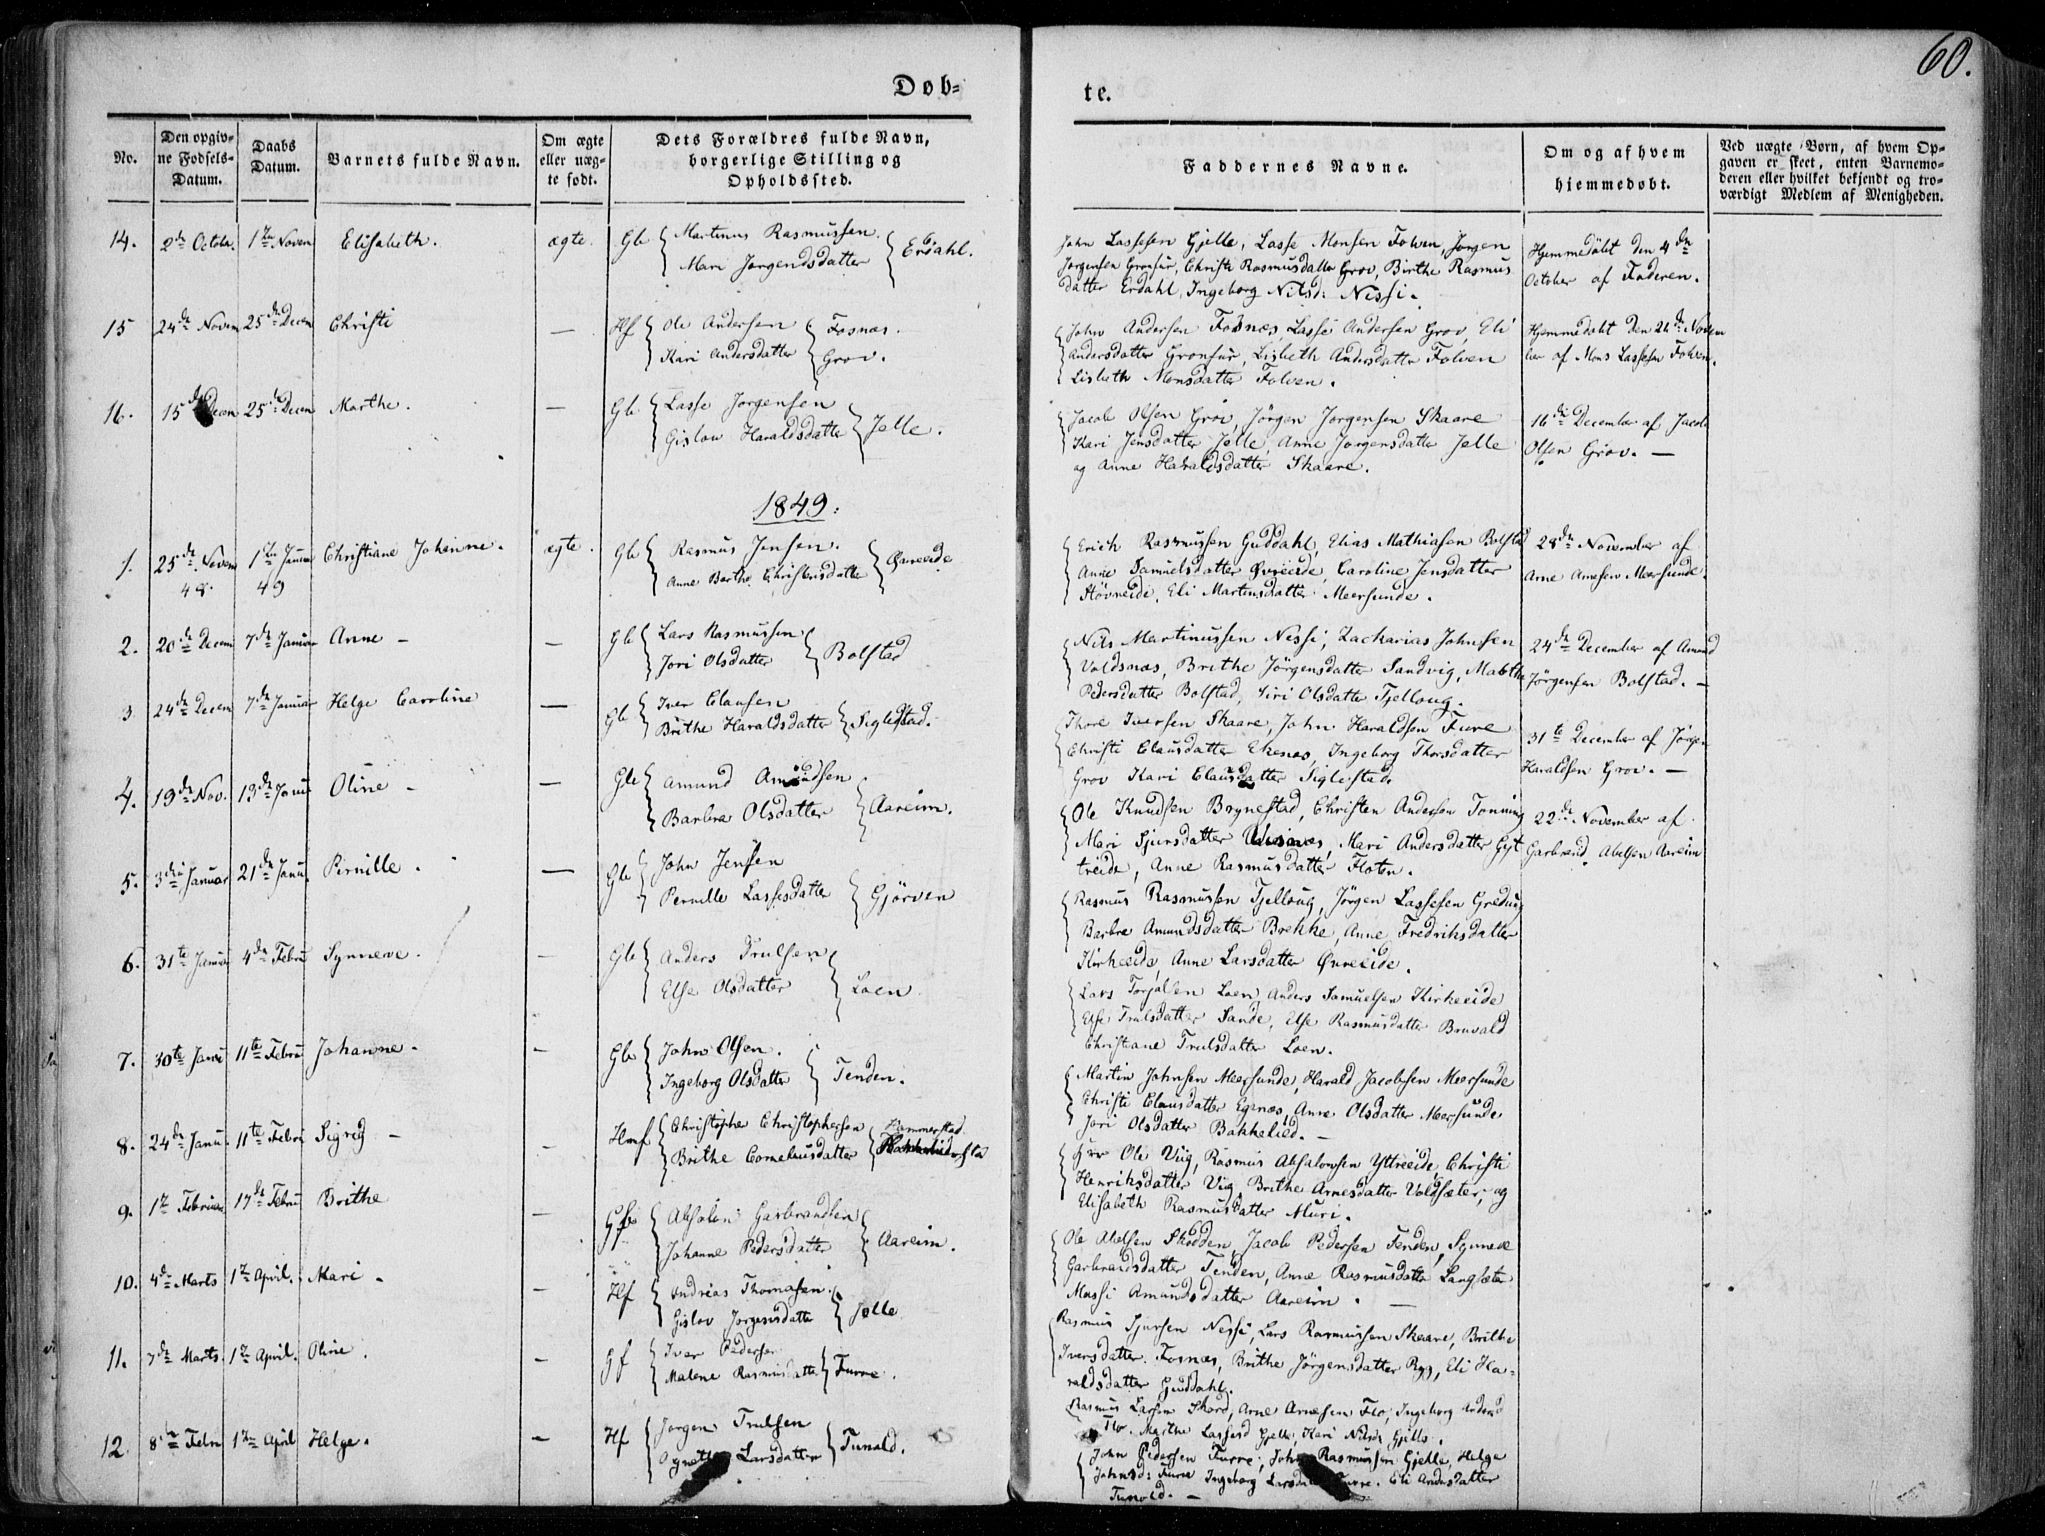 60.
Døb-
te.
No.
Den opgiv-
ne Fødsels-
Datum.
Daabs
Datum.
Barnets fulde Navn.
Om ægte
eller uæg-
te født.
Dets Forældres fulde Navn,
borgerlige Stilling og
Opholdssted.
Faddernes Navne.
Om og af hvem
hjemmedøbt.
Ved uægte Børn, af hvem Op-
gaven er skeet, enten Barnemo-
deren eller hvilket bekjendt og tro-
værdigt Medlem af Menigheden.
14. 2de Octobr. 1ste Noven Elisabeth. ægte. Gb Martinus Rasmussen
Mari Jørgensdatter Erdahl.
John Lassesen Gjelle, Lasse Monsen Folven, Jørgen
Jørgensen Gronfur, Christi Rasmusdatter Grov, Birthe Rasmus
datter Erdahl, Ingeborg Nilsd: Nessi.
Hjemmedøbt den 4de
October af Faderen.
15 24de Novem 25de Decem Christi — Hf Ole Andersen Fosnæs.
Kari Andersdatter Grov.
John Andersen Fosnæs, Lasse Andersen Grov, Eli
Andersdatter Gronfur, Lisbeth Andersdatter Folven
Lisbeth Monsdatter Folven.
Hjemmedøbt den Novem
ber af Mons Lassesen Folven.
16. 15de Decem 25de Decem Marthe. — Gb Lasse Jørgensen
Gislou Haraldsdatter Jelle.
Jacob Olsen Grov, Jørgen Jørgensen Skaare
Kari Jensdatter Jelle, Anne Jørgensdatter Jelle
og Anne Haraldsdatter Skaare.
16de December af Jacob
Olsen Grov. —
1849.
1. 25de Novem 1ste Januar Christiane Johanne. ægte. Gb Rasmus Jensen.
48. 49 Anne Barthe Christensdatter Øvreeide
Erich Rasmussen Guddahl, Elias Mathiasen Bolstad
Anne Samuelsdatter Øvreeide, Caroline Jensdatter
Støvreide, Eli Martinsdatter Meersunde.
28de November af
Arne Arnesen Meersunde.
2. 20de Decem 7de Januar Anne — — Gb Lars Rasmussen
Jori Olsdatter Bolstad
Nils Martinussen Nessi, Zacharias Johnsen
Voldsnæs, Brithe Jørgensdatter Sandvig, Marthe
Pedersdatter Bolstad, Siri Olsdatter Tjelloug.
24de December af Amund
Jørgensen Bolstad. —
3 24de Decem 7de Januar Helge Caroline — Gb Iver Clausen
Brithe Haraldsdatter Siglestad.
Thore Iversen Skaare, John Haraldsen Fure
Christi Clausdatter Ekenæs, Ingeborg Thorsdatter
Grov Kari Clausdatter Siglestad.
31te December af Jørgen
Haraldsen Grov. —
4. 19de Nov. 13de Janu Oline — — Gb Amund Amundsen
Barbra Olsdatter Aareim.
Ole Knudsen Brynestad, Christen Andersen Tonning
Mari Sjursdatter Mari Andersdatter Gyt
treide, Anne Rasmusdatter Floten.
22de November af
Garbrand Abelsen Aareim
5. 3die Januar 21de Janu. Pernille. — Gb John Jensen
Pernille Lassesdatter Gjørven
Rasmus Rasmussen Tjelloug, Jørgen Lassesen Greduug
Barbra Amundsdatter Brekke, Anne Fredriksdatter
Kirkeeide, Anne Larsdatter Øvreeide.
6. 31te Januar 4de Febru Synneve. — Gb Anders Trulsen
Else Olsdatter Loen
Lars Torjolsen Loen, Anders Samuelsen Kirkeeide
Else Trulsdatter Sande, Else Rasmusdatter Bruvold
Christiane Trulsdatter Loen.
7. 30te Janu 11te Febru Johanne. — Gb John Olsen.
Ingeborg Olsdatter Tenden.
Martin Johnsen Meersunde, Harald Jacobsen Meersunde
Christi Clausdatter Egenæs, Anne Olsdatter Meersunde
Jori Olsdatter Bakkelied. —
8. 24de Janu. 11te Febru Sigrid — — Hmf Christopher Christophersen Hammerstad
Brithe Corneliusdatter
Hrr Ole Viig, Rasmus Absalonsen Yttreeide, Christi
Henriksdatter Vig, Brithe Arnesdatter Voldsæter, og
Elisabeth Rasmusdatter Muri.
9. 1te Februar 17de Febru Brithe — Gf Absalon Garbrandsen
Johanne Pedersdatter Aareim.
Ole Abelsen Skødden, Jacob Pedersen Tenden, Synneve
Garbrandsdatter Tenden, Anne Rasmusdatter Langsæter
Massi Amundsdatter Aareim. —
10. 4de Marts 1te April. Mari. — Hf Andreas Thomasen.
Gislov Jørgensdatter Jelle
Rasmus Sjursen Nessi, Lars Rasmussen Skaare, Brithe
Iversdatter Fosnæs, Brithe Jørgensdatter Ryg, Eli Ha-
raldsdatter Guddahl.
11. 7de Marts 1te April. Oline. — Gf Iver Pedersen
Malene Rasmusdatter Furre.
Rasmus Larsen Skørd, Arne Arnesen Flo, Ingeborg Andersd
Flo. Marthe Lassesd Gjelle, Kari Nilsd: Gjelle.
12. 8de Febr 1ste April Helge. — Hf Jørgen Trulsen
Larsdatter Tunold.
John Pedersen Furre, John Rasmussen Gjelle, Helge
Johnsd: Furre Ingeborg Larsdatter Furre. Eli Andersdatter
Tunold. —